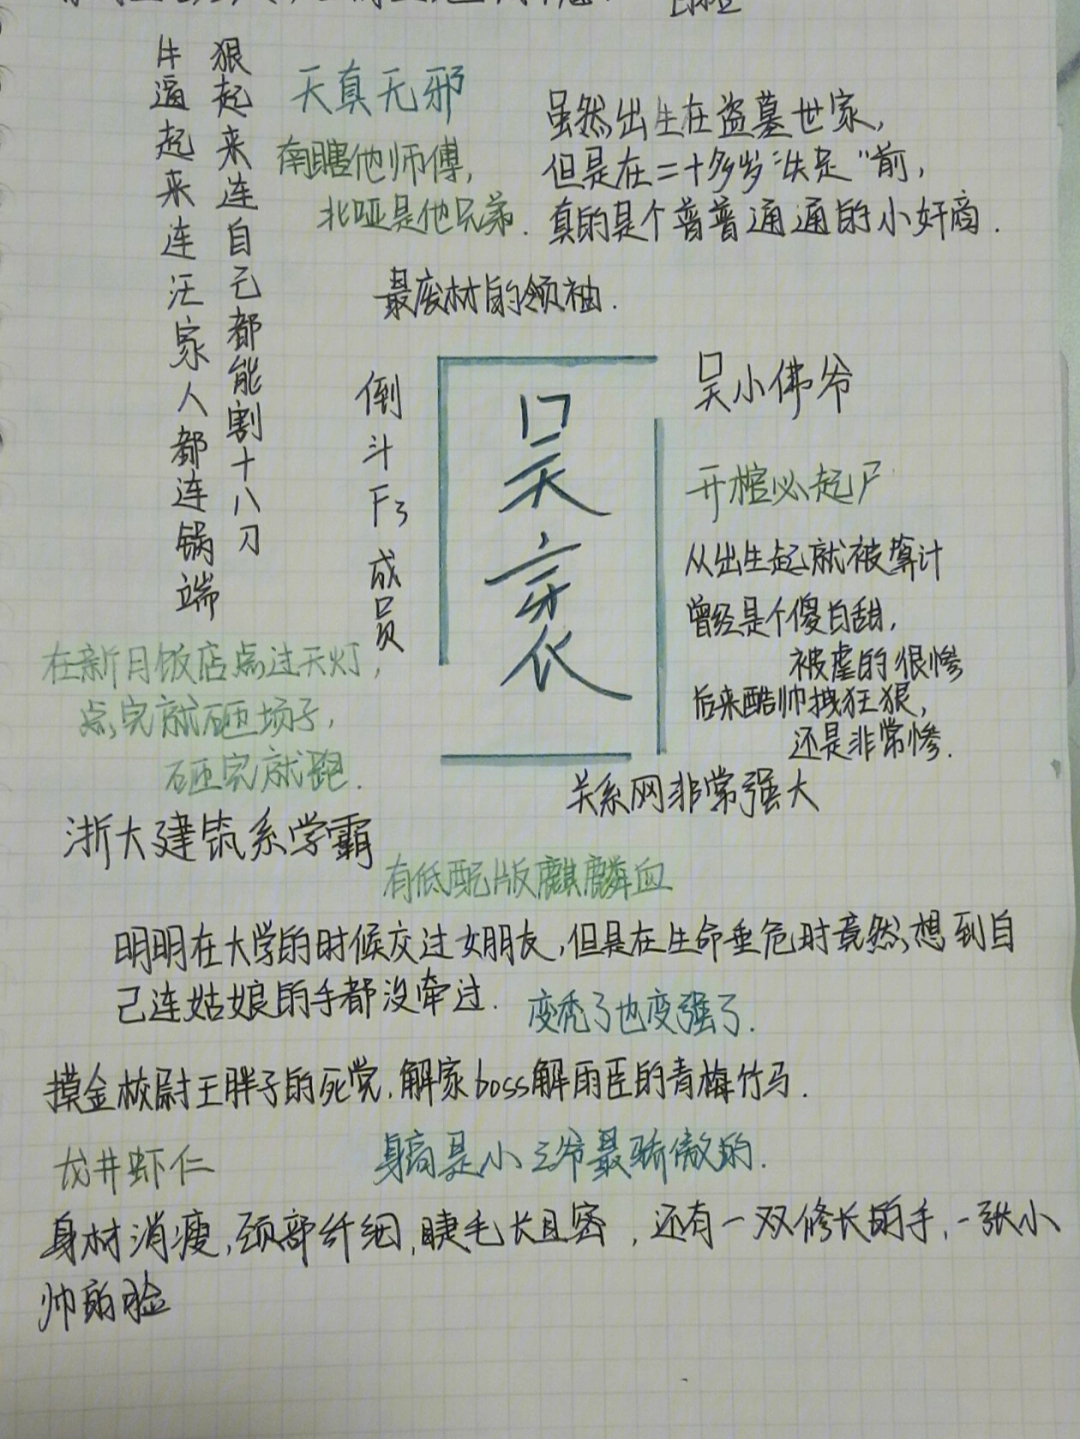 狠起来连自己都能割十八刀
牛逼起来连汪家人都连锅端
天真无邪
南瞎他师傅,
北哑是他兄弟.
虽然出生在盗墓世家,
但是在二十多岁“失足”前,
真的是个普普通通的小奸商.
最废材的领袖.
倒斗F3成员
吴邪
吴小佛爷
开棺必起尸
从出生起就被算计
曾经是个傻白甜,
被虐的很惨
后来酷帅拽狂狠,
还是非常惨.
关系网非常强大
在新月饭店点过天灯,
点完就砸场子,
砸完就跑.
浙大建筑系学霸
有低配版麒麟血
明明在大学的时候交过女朋友,但是在生命垂危时竟然想到自
己连姑娘的手都没牵过.
变秃了也变强了.
摸金校尉王胖子的死党.解家boss解雨臣的青梅竹马.
龙井虾仁
身高是小三爷最骄傲的.
身材消瘦,颈部纤细,睫毛长且密,还有一双修长的手,一张小
帅的脸